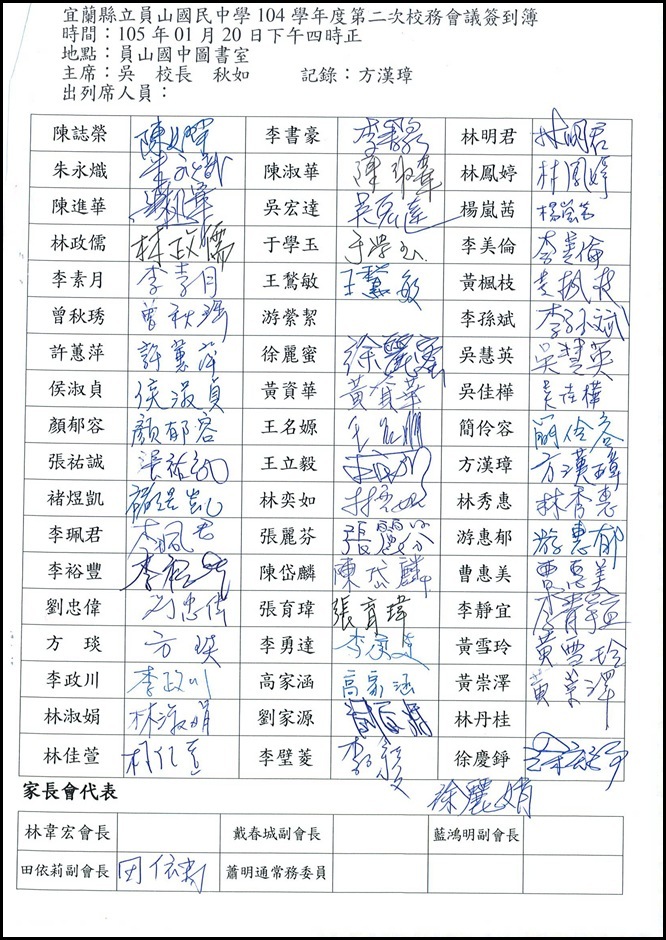 宜蘭縣立員山國民中學 104 學年度第二次校務會議簽到簿
時間：105 年 01 月 20 日下午四時正
地點：員山國中圖書室
主席：吳　校長　秋如　　記錄：方漢璋
出列席人員：
陳誌榮 李書豪 林明君 林明君
朱永熾 陳淑華 陳淑華 林鳳婷 林鳳婷
陳進華 吳宏達 吳宏達 楊嵐茜 楊嵐茜
林政儒 林政儒 于學玉 于學玉 李美倫 李美倫
李素月 李素月 王鶖敏 黃楓枝 黃楓枝
曾秋琇 曾秋琇 游縈絜 李孫斌 李孫斌
許蕙萍 許蕙萍 徐麗蜜 徐麗蜜 吳慧英 吳慧英
侯淑貞 侯淑貞 黃資華 黃資華 吳佳樺 吳佳樺
顏郁容 顏郁容 王名嫄 簡伶容 簡伶容
張祐誠 張祐誠 王立毅 方漢璋 方漢璋
褚煜凱 褚煜凱 林奕如 林奕如 林秀惠 林秀惠
李珮君 李珮君 張麗芬 張麗芬 游惠郁 游惠郁
李裕豐 陳岱麟 陳岱麟 曹惠美 曹惠美
劉忠偉 刘忠偉 張育瑋 張育瑋 李靜宜 李靜宜
方　琰 方琰 李勇達 黃雪玲 黃雪玲
李政川 李政川 高家涵 高家涵 黃崇澤 黃崇澤
林淑娟 林淑娟 劉家源 林丹桂
林佳萱 李壁菱 徐慶錚
家長會代表 徐麗娟
林韋宏會長 戴春城副會長 藍鴻明副會長
田依莉副會長 田依莉 蕭明通常務委員